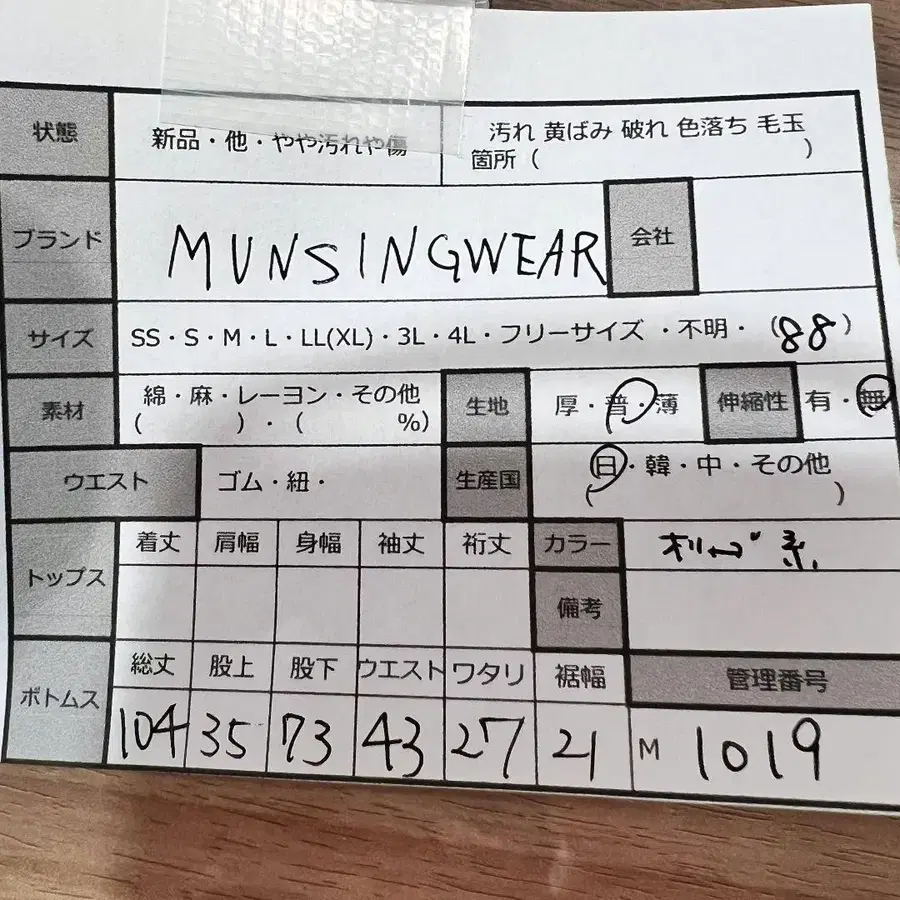 状態 新品・他・やや汚れや傷 汚れ 黄ばみ 破れ 色落ち 毛玉
箇所 ( )
ブランド MUNSINGWEAR 会社
サイズ SS・S・M・L・LL(XL)・3L・4L・フリーサイズ ・不明・ (88)
素材 綿・麻・レーヨン・その他 生地 厚・普・薄 伸縮性 有・無
( )・( %)
ウエスト ゴム・紐・ 生産国 日・韓・中・その他
( )
トップス 着丈 肩幅 身幅 袖丈 裄丈 カラー オリーブ系
備考
ボトムス 総丈 股上 股下 ウエスト ワタリ 裾幅 管理番号
104 35 73 43 27 21 M 1019